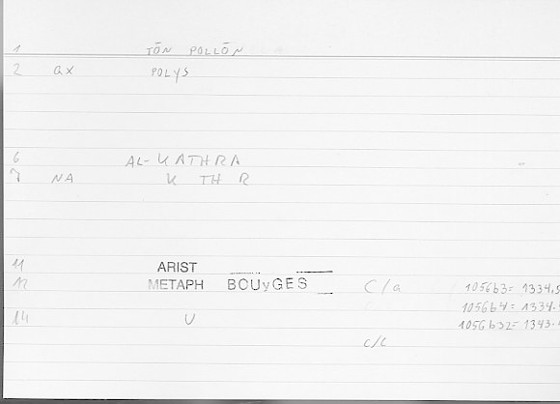 1 TŌN POLLŌN
2 ax POLYS
6 AL-KATHRA
7 NA K TH R
11 ARIST
12 METAPH BOUyGES C/a 1056b3= 1334.5
1056b4= 1334.
14 U 1056b32= 1343.
c/c